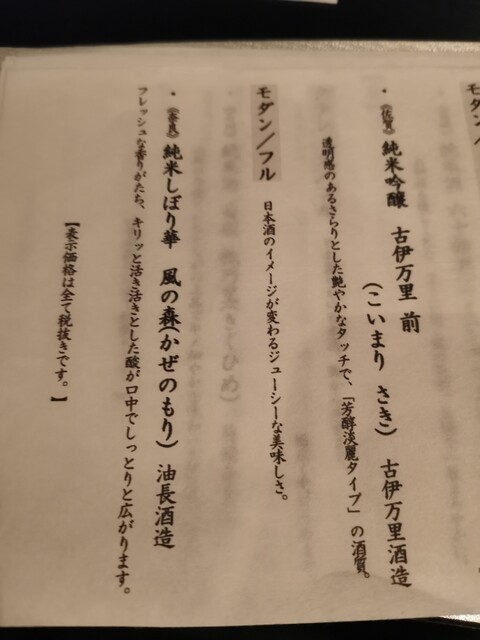 モダン／
・《佐賀》純米吟醸　古伊万里 前（こいまり さき）　古伊万里酒造
透明感のあるさらりとした艶やかなタッチで、「芳醇淡麗タイプ」の酒質。
モダン／フル　日本酒のイメージが変わるジューシーな美味しさ。
・《奈良》純米しぼり華　風の森（かぜのもり）　油長酒造
フレッシュな香りがたち、キリッと活き活きとした酸が口中でしっとりと広がります。
【表示価格は全て税抜きです。】